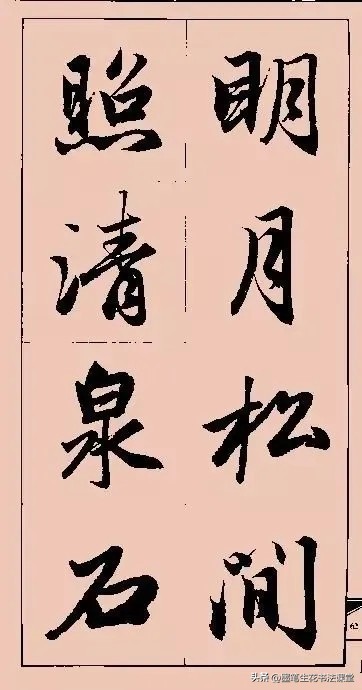 明月松間
照清泉石
62
头条@墨笔生花书法课堂